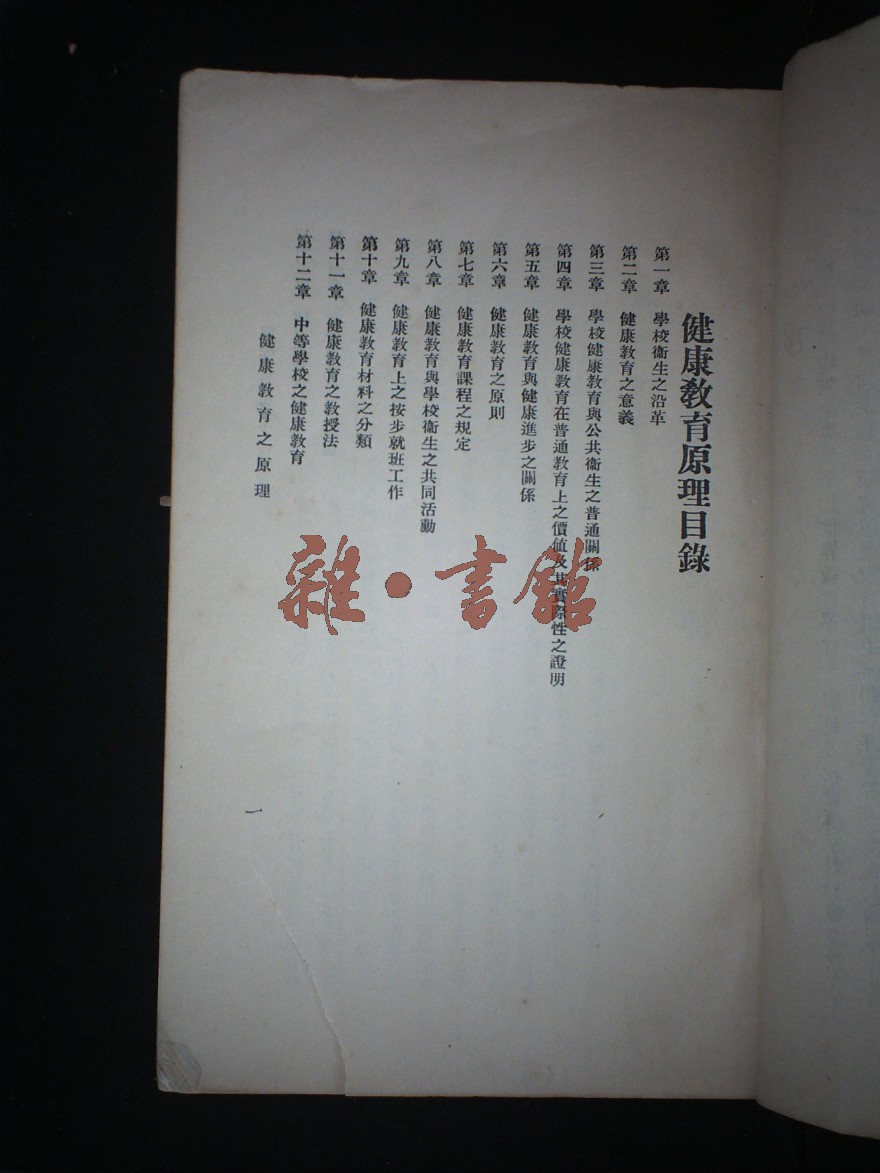 健康教育原理目錄
第一章　學校衞生之沿革
第二章　健康教育之意義
第三章　學校健康教育與公共衞生之普通關係
第四章　學校健康教育在普通教育上之價值及其實際性之證明
第五章　健康教育與健康進步之關係
第六章　健康教育之原則
第七章　健康教育課程之規定
第八章　健康教育與學校衞生之共同活動
第九章　健康教育上之按步就班工作
第十章　健康教育材料之分類
第十一章　健康教育之教授法
第十二章　中等學校之健康教育
健康教育之原理
一
雜·書館